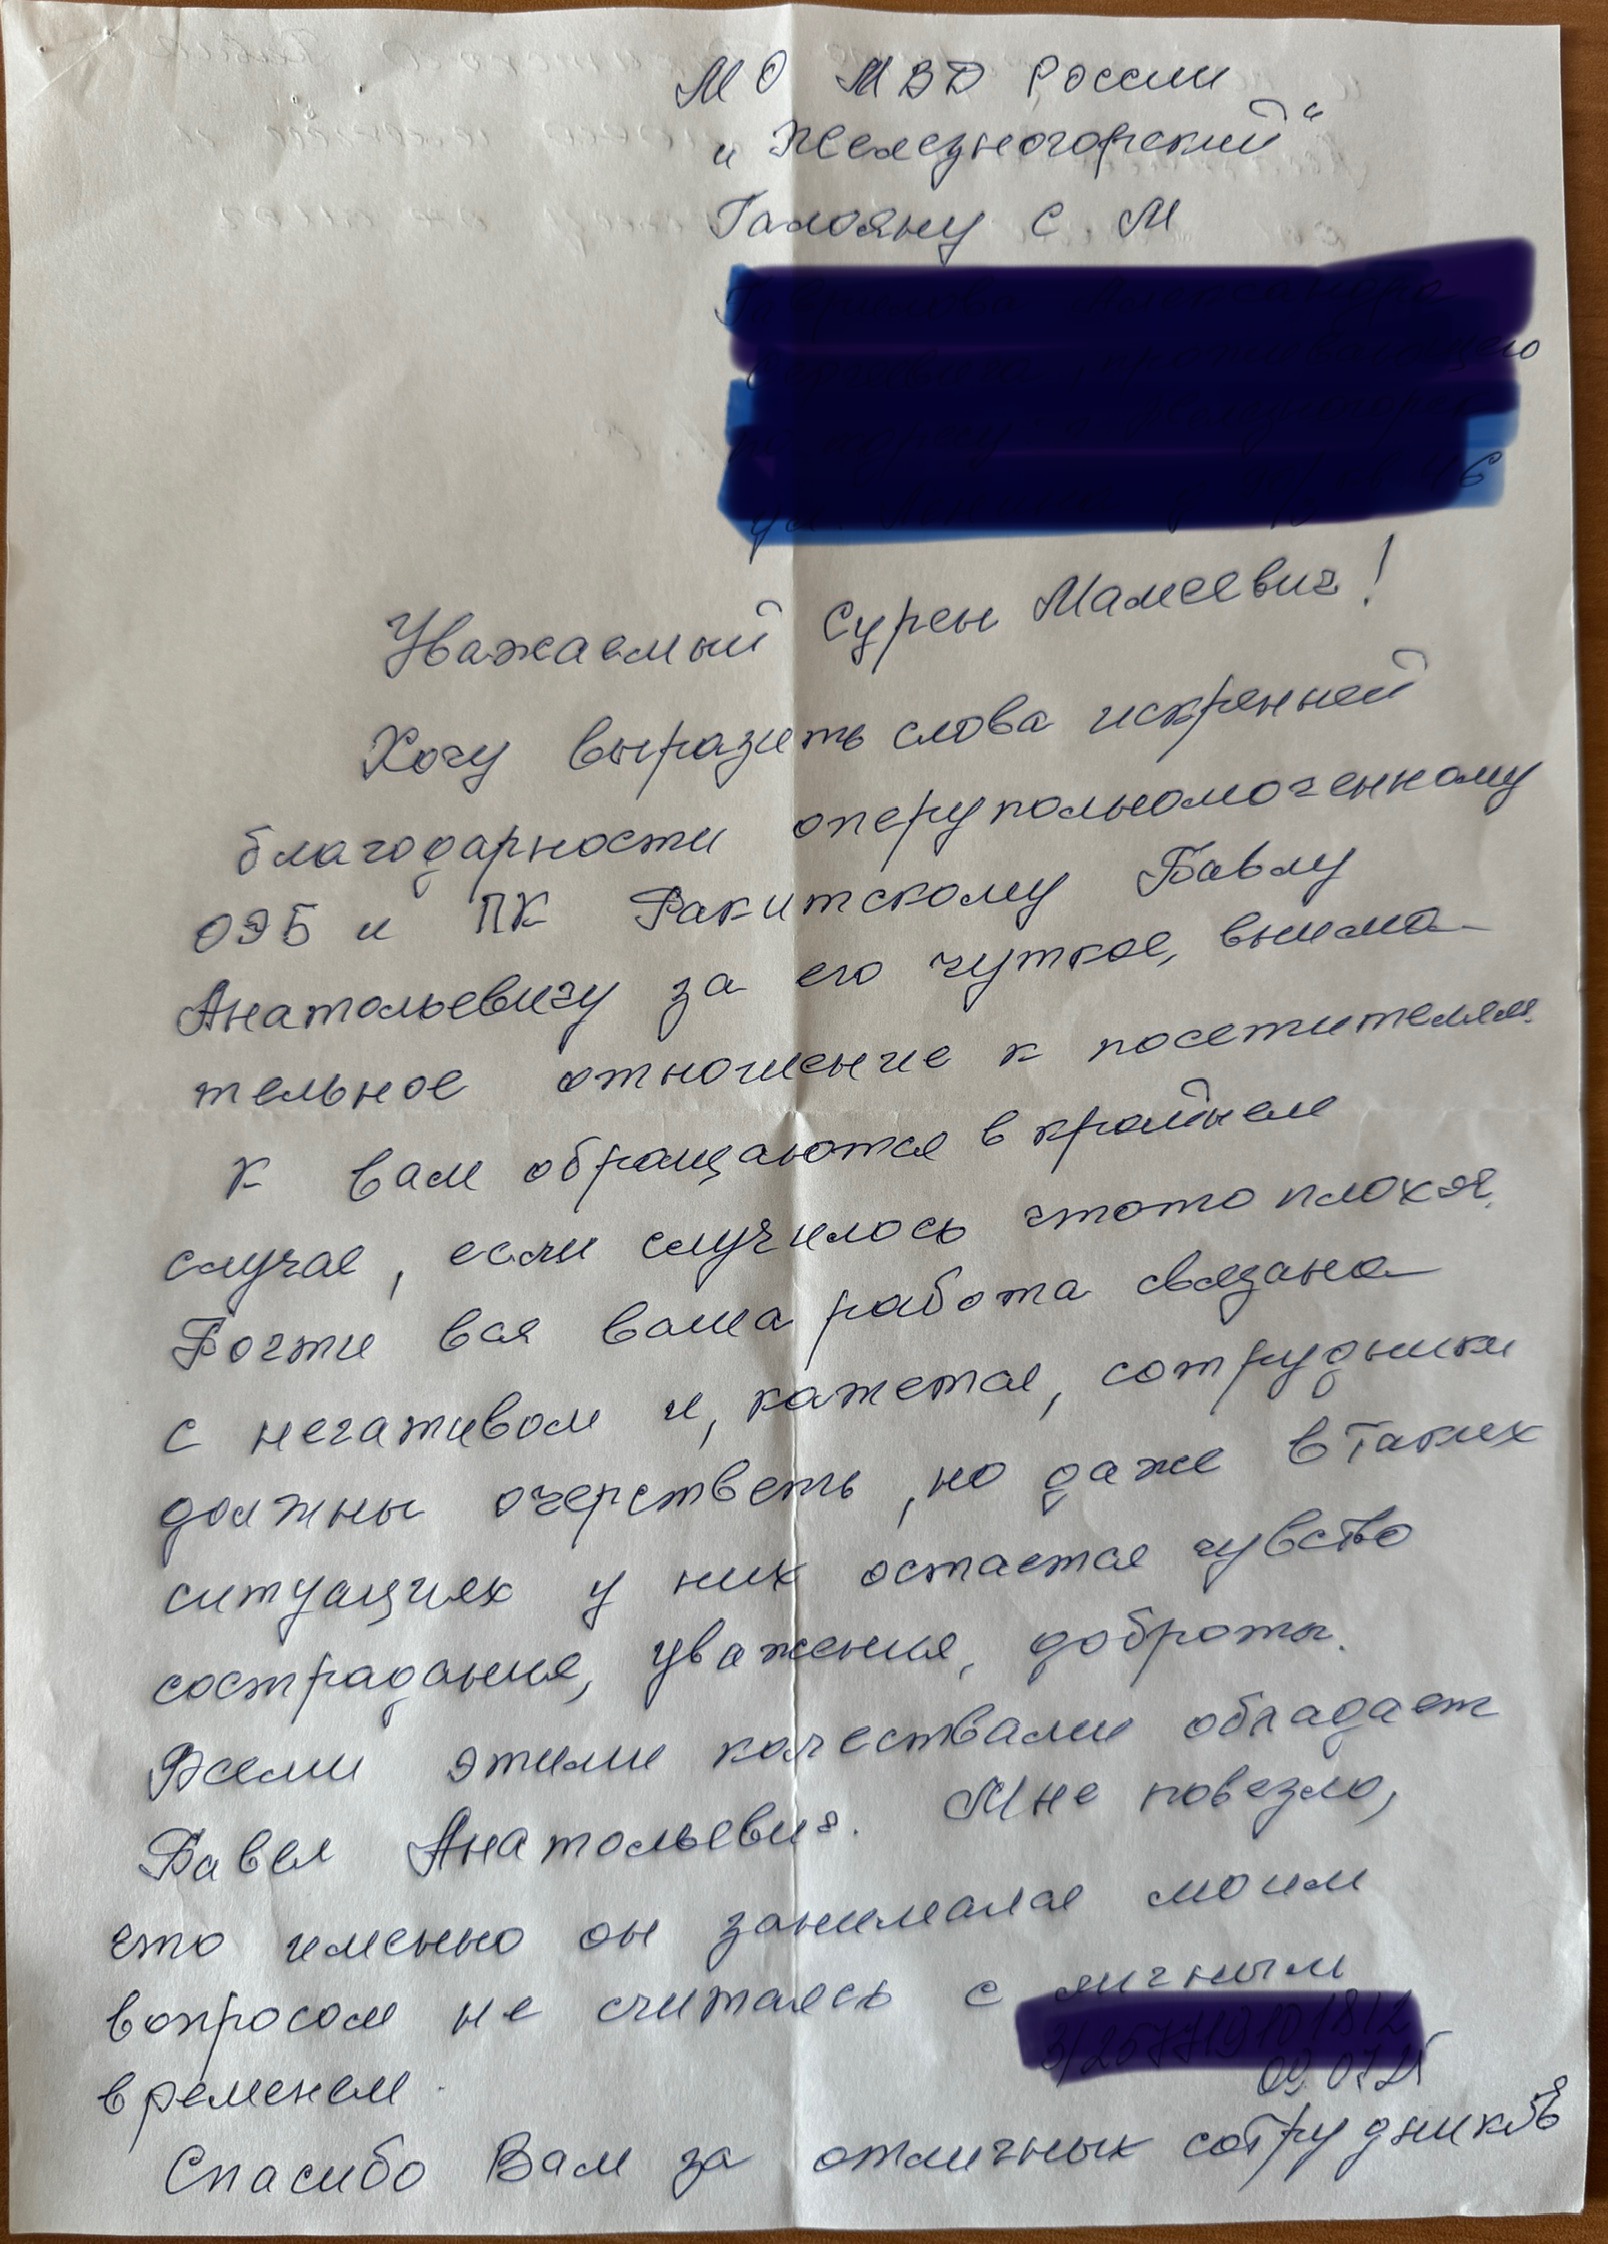 МО МВД России
"Железногорский"
Галояну С. М
Уважаемый Сурен Мамеевич!
Хочу выразить слова искренней
благодарности оперуполномоченному
ОЭБ и ПК Ракитскому Павлу
Анатольевичу за его чуткое, внима
тельное отношение к посетителям.
К вам обращаются в крайнем
случае, если случилось чтото плохое.
Почти вся ваша работа связана
с негативом и, кажется, сотрудники
должны очерстветь, но даже в таких
ситуациях у них остается чувство
сострадания, уважения, доброты.
Всеми этими качествами обладает
Павел Анатольевич. Мне повезло,
что именно он занимался моим
вопросом не считаясь с личным
временем.
09.07.25
Спасибо Вам за отличных сотрудников